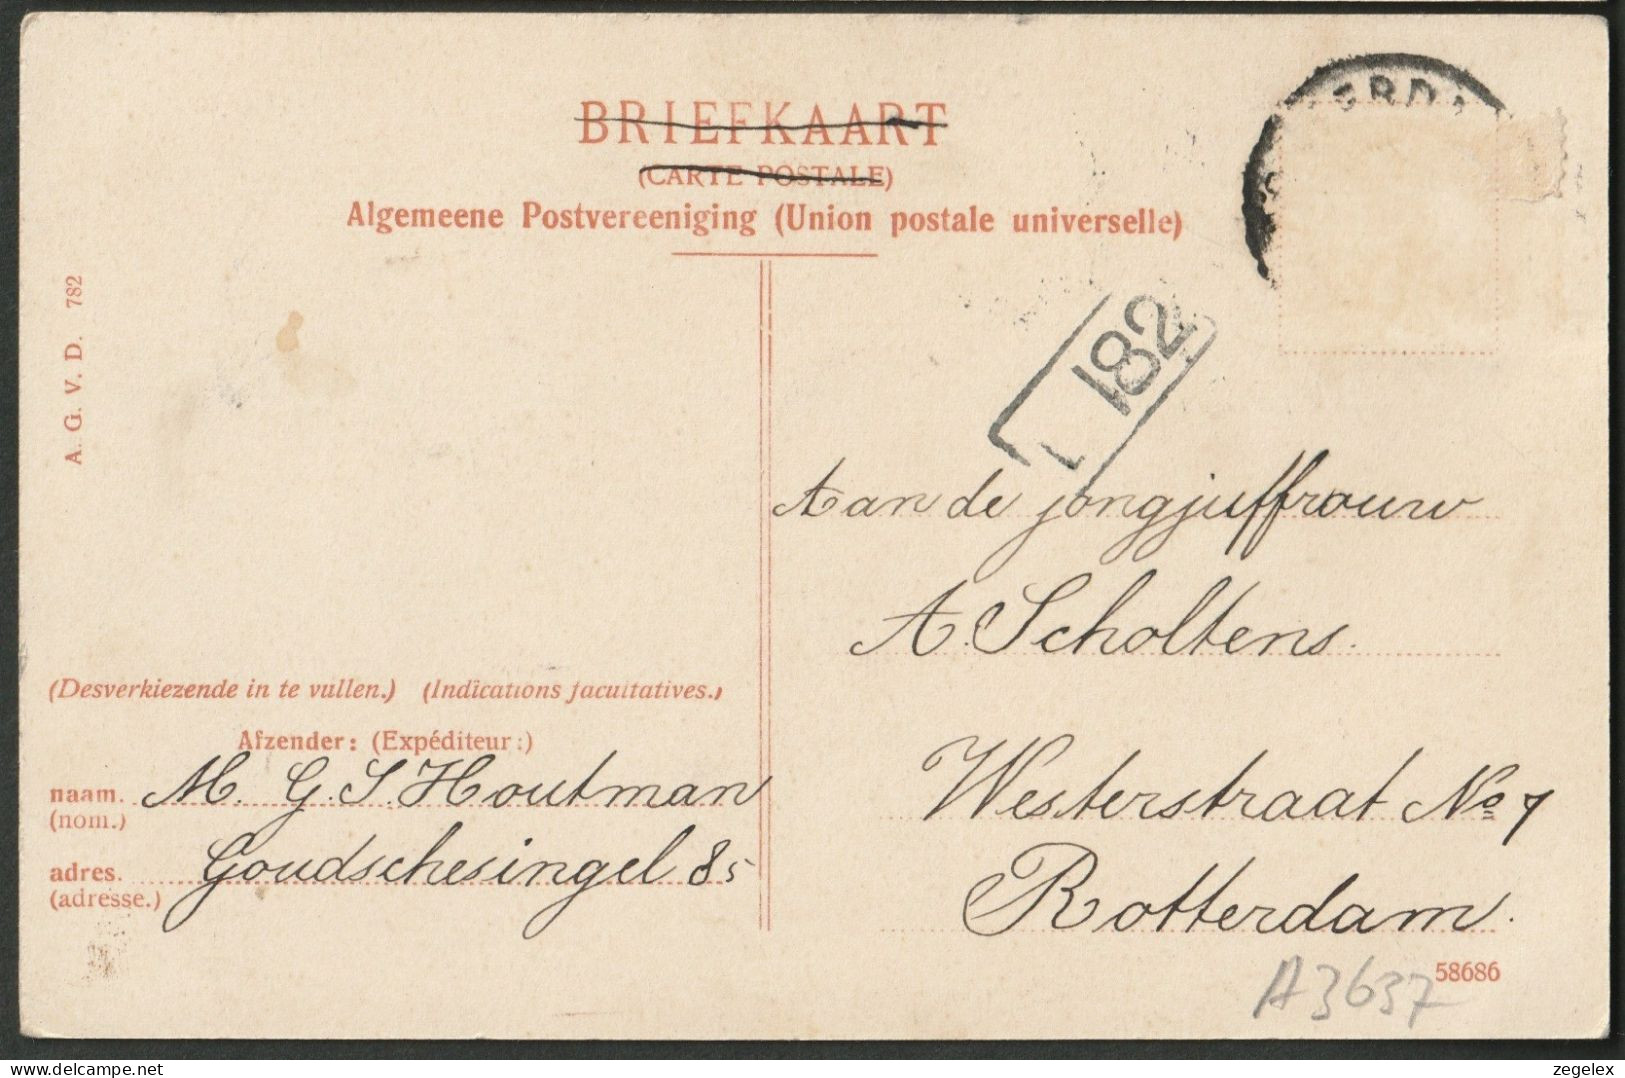 BRIEFKAART
(CARTE POSTALE)
Algemeene Postvereeniging (Union postale universelle)
ERDA
A. G. V. D. 782
182
Aan de jongjuffrouw
A. Scholtens.
Westerstraat No 7
Rotterdam.
(Desverkiezende in te vullen.) (Indications facultatives.)
Afzender: (Expéditeur:)
naam. M. G. S. Houtman
(nom.)
adres. Goudschesingel 85
(adresse.)
58686
A3637
delcampe.net
zegelex